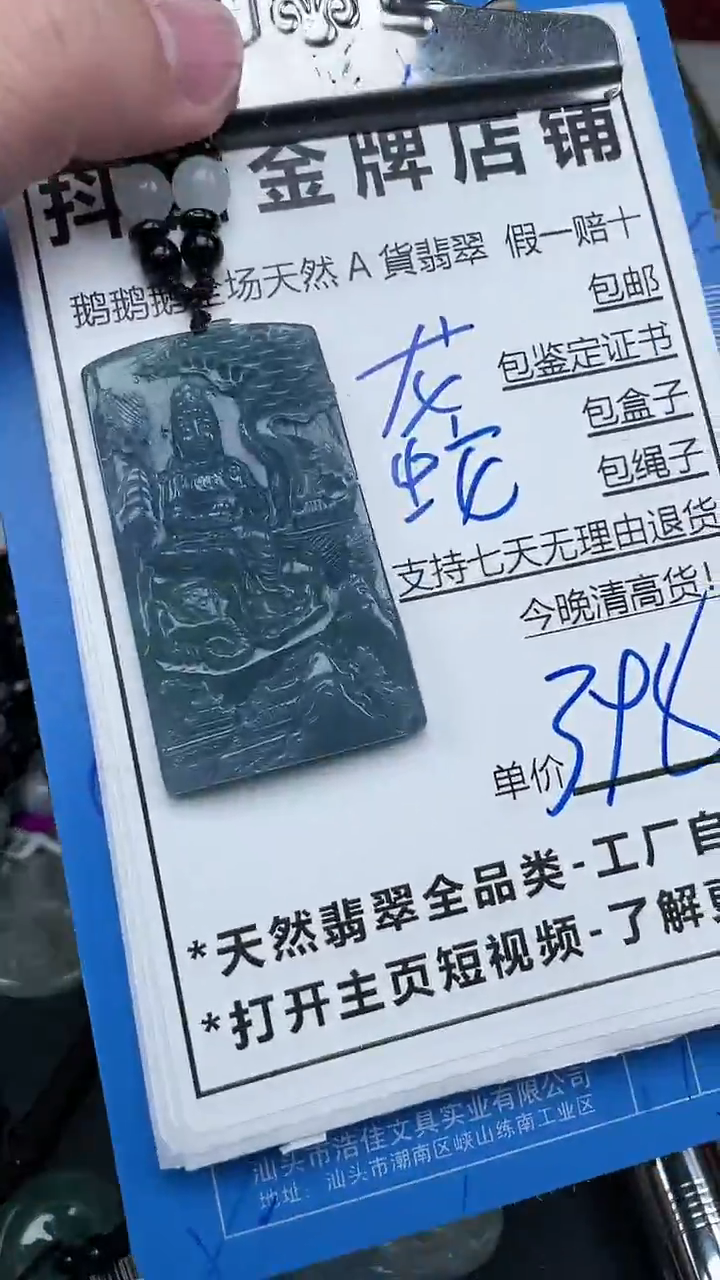 抖 金牌店铺
鹅鹅鹅全场天然A貨翡翠 假一赔十
包邮
包鉴定证书
包盒子
包绳子
支持七天无理由退货
今晚清高货!
单价 398
*天然翡翠全品类-工厂自
*打开主页短视频-了解更
汕头市浩佳文具实业有限公司
地址：汕头市潮南区峡山练南工业区